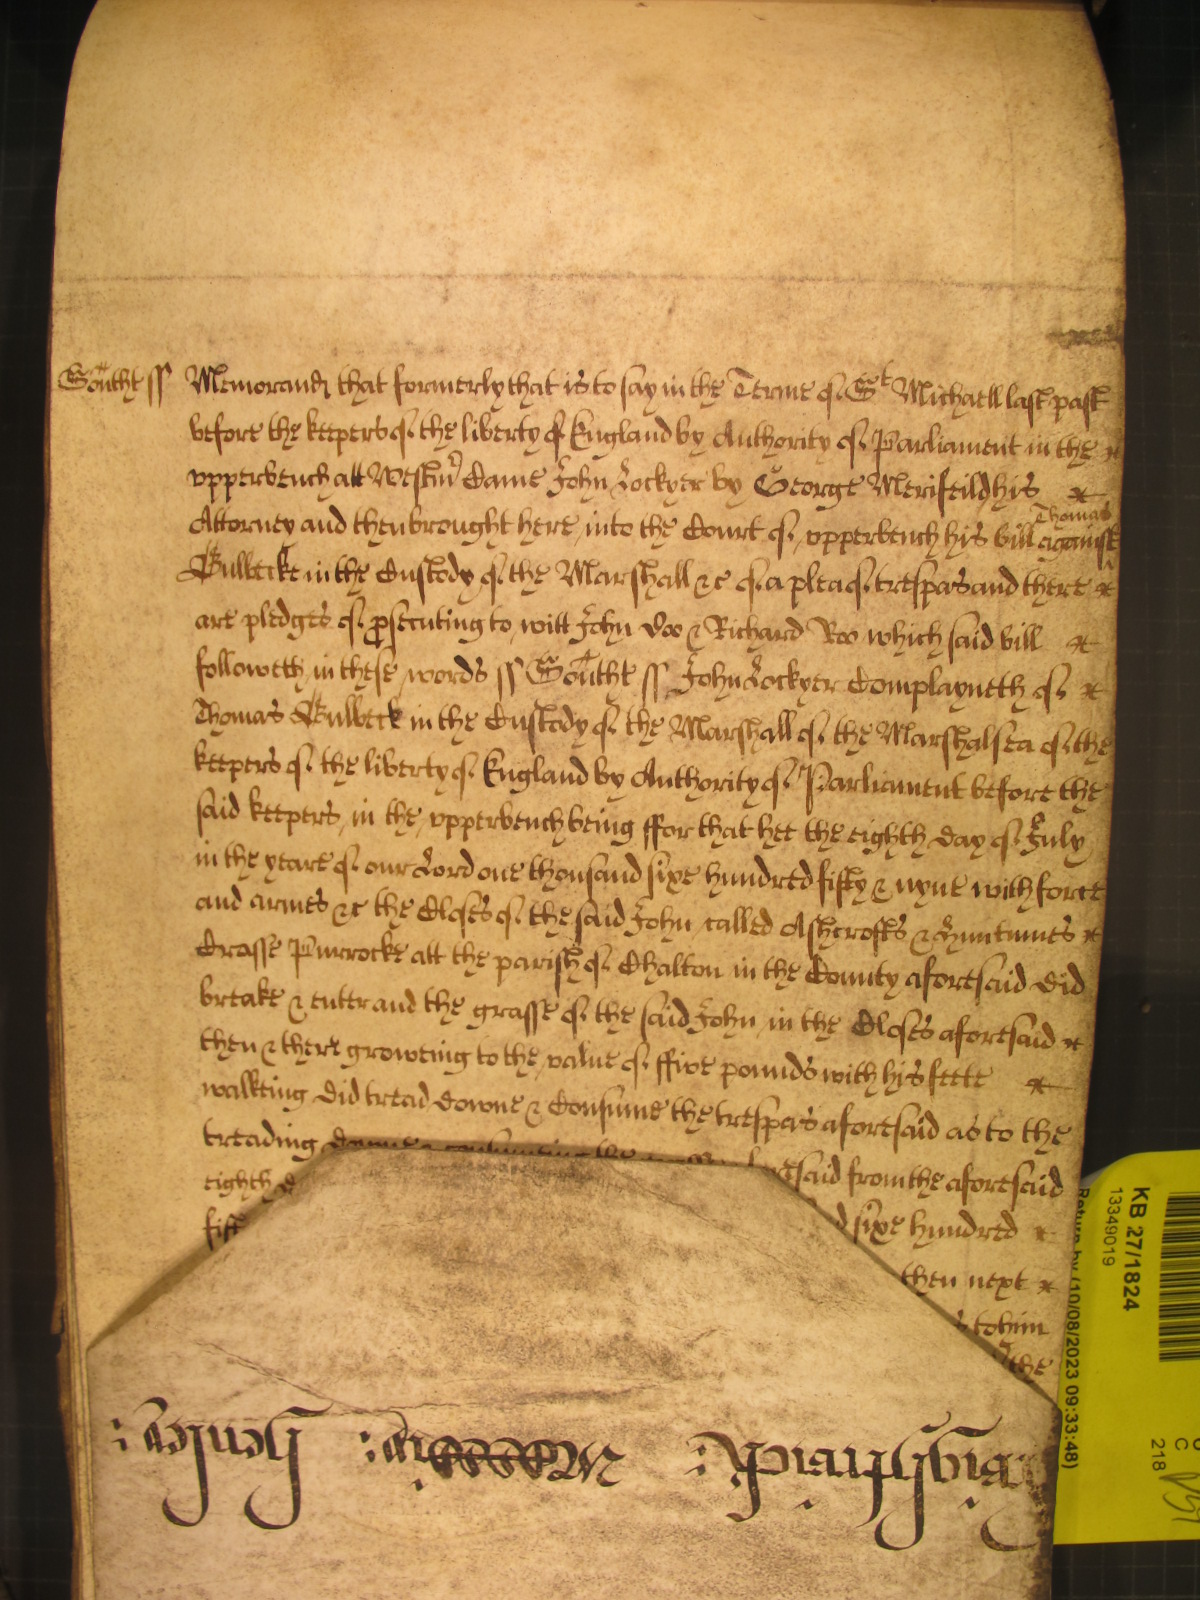 Southt ss Memorand that formerly that is to say in the Terme of St Michaell last past
before the keepers of the liberty of England by Authority of Parliament in the
vpperbench att Westmr Came John Lockyer by George Merifeild his
Attorney and then brought here into the Court of vpperbench his bill against Thomas
Bulbecke in the Custody of the Marshall &c of a plea of trespas and there
are pledges of prosecuting to witt John Doo & Richard Roo which said bill
followeth in these words ss Southt ss John Lockyer Complayneth of
Thomas Bulbeck in the Custody of the Marshall of the Marshalsea of the
keepers of the liberty of England by Authority of Parliament before the
said keepers in the vpperbench being ffor that hee the eighth day of July
in the yeare of our Lord one thousand sixe hundred fifty & nyne with force
and armes &c the Closes of the said John called Ashcrofts &
Grasse Purrocke att the parish of Chalton in the County aforesaid did
breake & enter and the grasse of the said John in the Closes aforesaid
then & there groweing to the value of ffive pounds with his feete
walkeing did tread downe & Consume the trespas aforesaid as to the
treading downe & consumeing the said from the aforesaid
eighth
sixe hundred
then next
to him
the
KB 27/1824
13349019
Return by (10/08/2023 09:33:48)
218